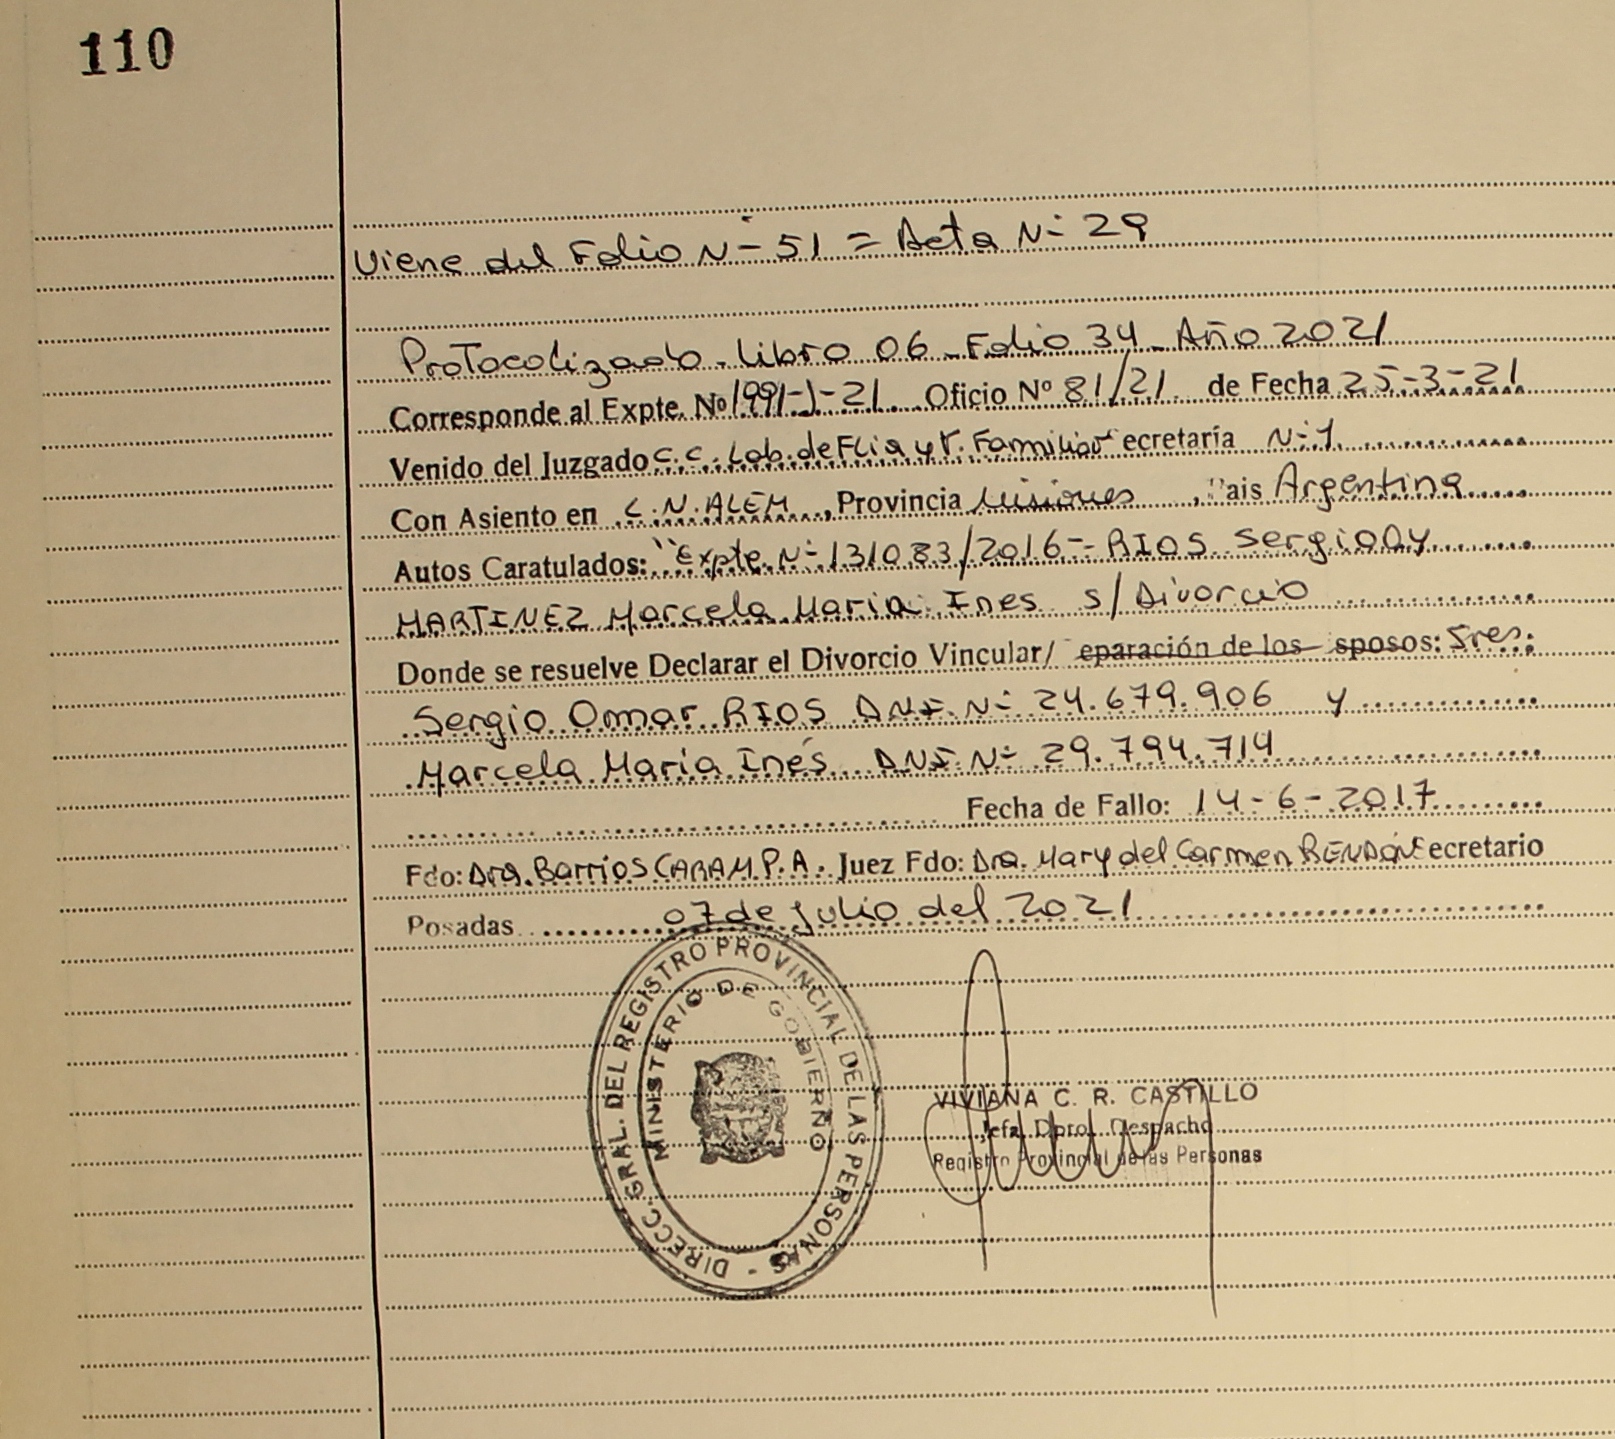 110
Viene del Folio N- 51 = Acta N- 29
Protocolizado. Libro 06 Folio 34 Año 2021
Corresponde al Expte. Nº 1991-J-21 Oficio Nº 81/21 de Fecha 25-3-21
Venido del Juzgado C.C. Lab. de Flia y V. Familiar ecretaría N-1
Con Asiento en L.N. ALEM, Provincia Misiones, ais Argentina
Autos Caratulados: "Expte. N- 131083/2016- RIOS Sergio O y
MARTINEZ Marcela Maria Ines s/ Divorcio
Donde se resuelve Declarar el Divorcio Vincular/ eparación de los sposos: Sres:
Sergio Omar RIOS DNI. N- 24.679.906 y
Marcela María Inés DNI. N- 29.794.714
Fecha de Fallo: 14-6-2017
Fdo: Dra. Barrios CARAM P.A. Juez Fdo: Dra. Mary del Carmen RENDÓN ecretario
Posadas 07 de julio del 2021
DIRECC. GRAL. DEL REGISTRO PROVINCIAL DE LAS PERSONAS -
MINISTERIO DE GOBIERNO
VIVIANA C. R. CASTILLO
Jefa Dpto. Despacho
Registro Provincial de las Personas